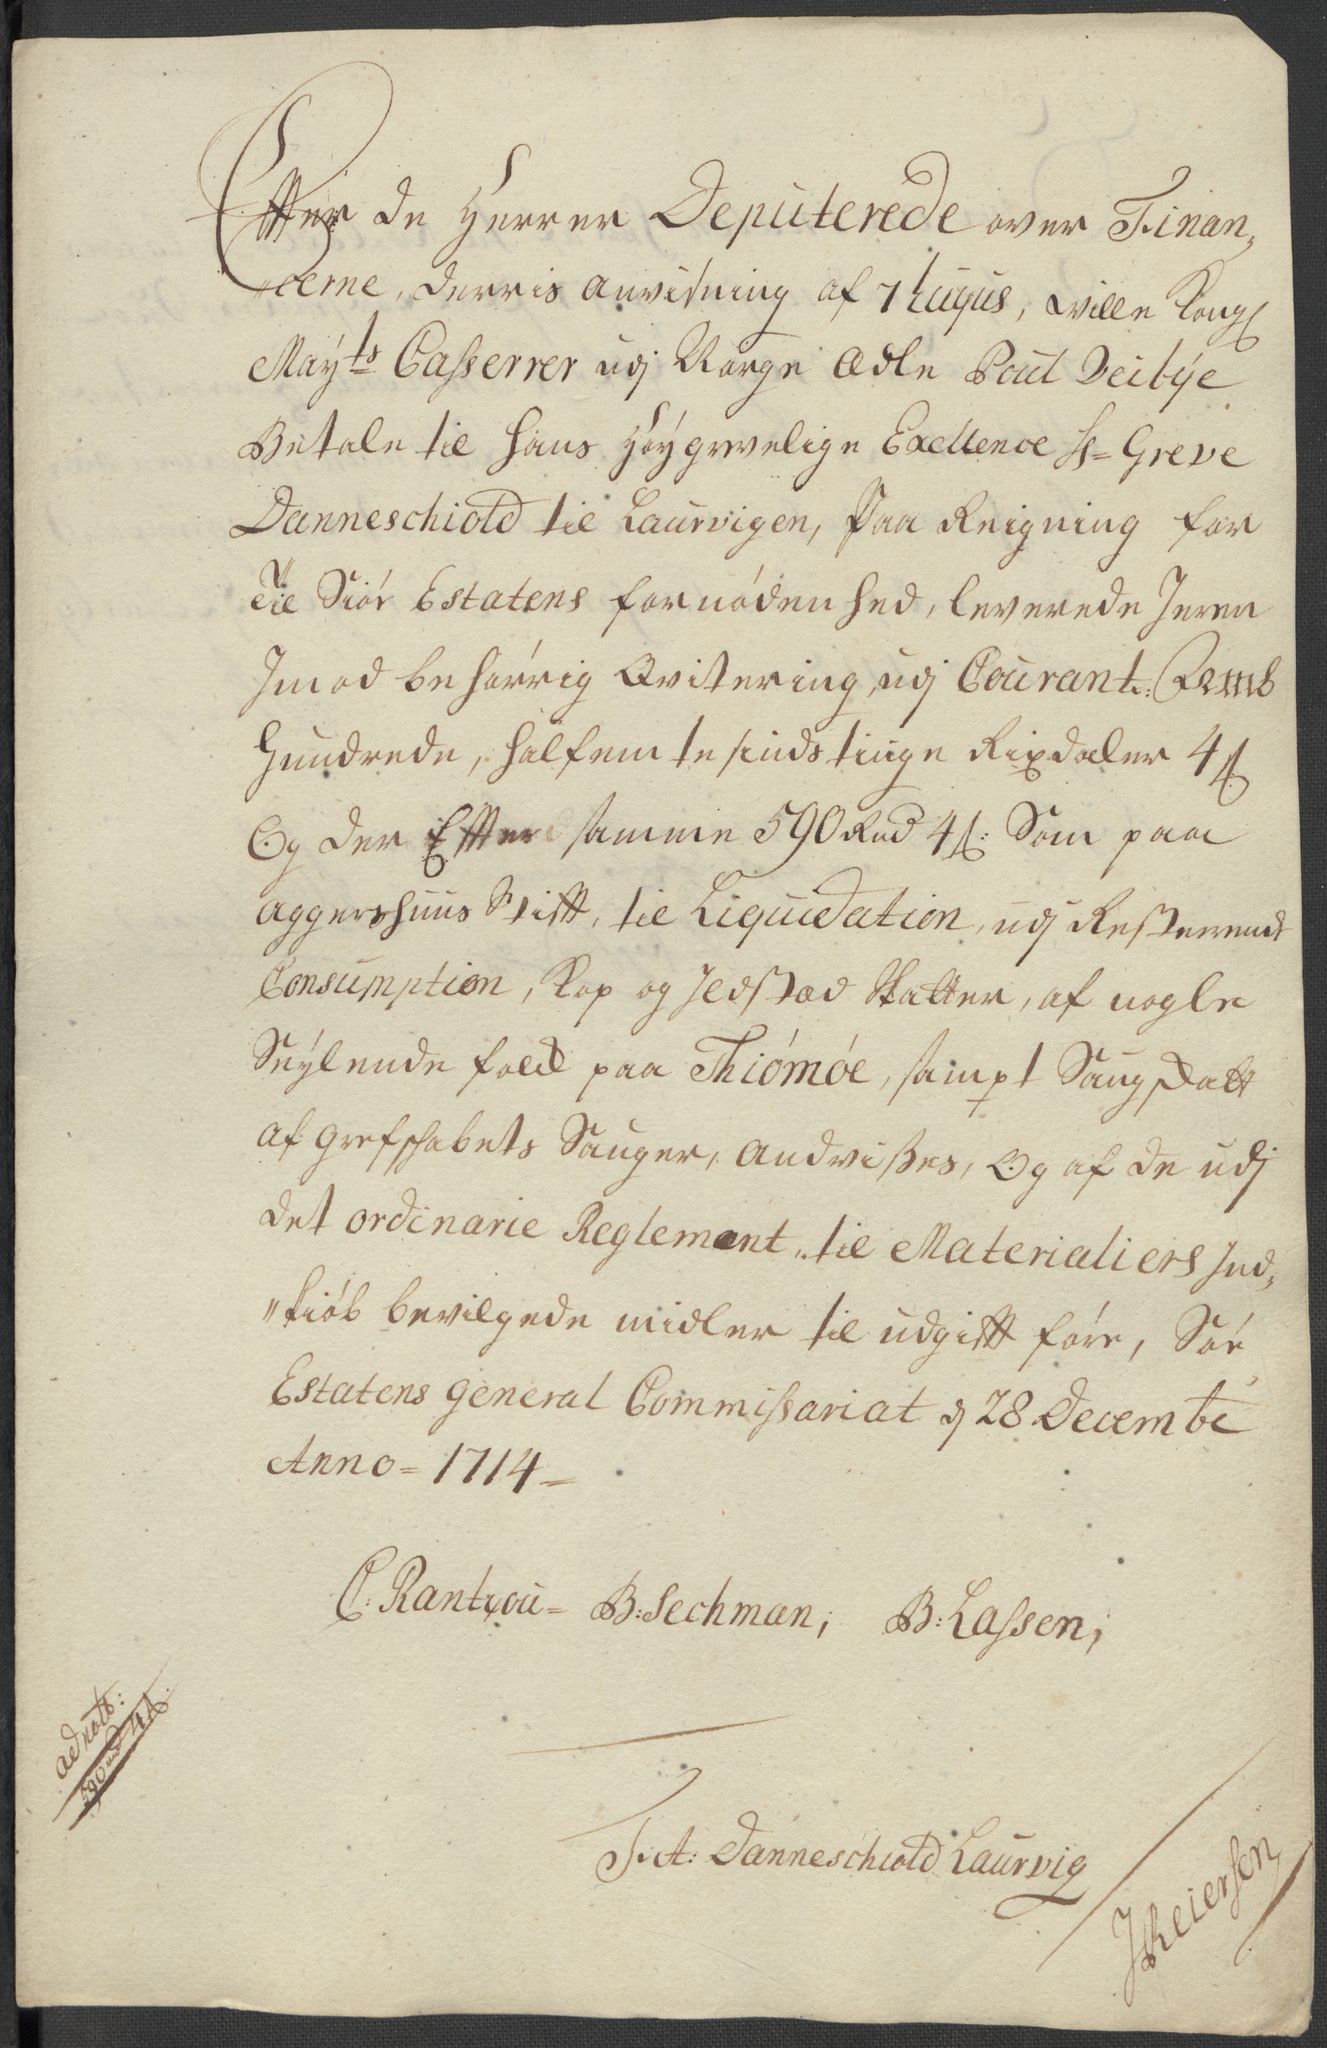 Effter de Herrer Deputerede over Finan,
cerne, derris anvisning af 7 hujus, wille Kongl
Mayts Casserrer udj Norge Ædle Poul Veibye
Betale til hans Høygrevelige Exellence Hr Greve
Danneschiold til Laurvigen, Paa Reigning for
til Siór Estatens fornódenhed, leverede Jeren
Jmod behórrig Qvitering, udj Courant: Femb
Hundrede, halfemtesindstiuge Rixdaler 4 ß
Og der Effter samme 590 Rd 4 ß: Som paa
Aggershuus Stift, til Liquidation, udj Resterende
Consumption, Kop og Jldsted Skatter, af nogle
Seylende folck paa Thiómóe, sampt Saugskatt
af grefskabets Sauger, andvißes, Og af de udj
det ordinarie Reglement, til Materialiers Ind,
"kiób bevilgede midler til udgifft fóre, Sóe
Estatens general Commissariat d 28 Decembr
Anno = 1714 =
C: Rantzou = B: Sechman; B: Lassen;
ad nots:
590 rd 4 ß.
F: A: Danneschiold Laurvig
J Reiersen